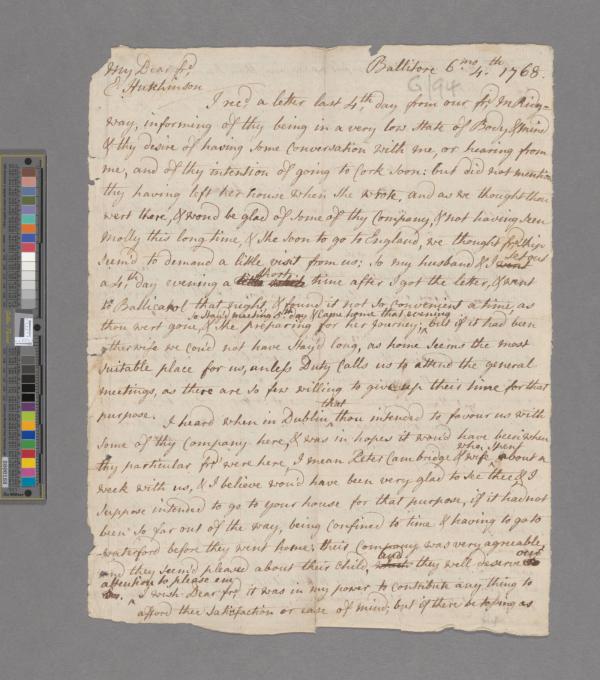 My Dear frd
Ballitore 6mo 4th 1768.
G/94
E. Hutchinson
I recd a letter last 4th day from our frd M Ridg=
way, informing of thy being in a very low State of Body & mind
& thy desire of having Some Conversation with me, or hearing from
me, and of thy intention of going to Cork Soon: but did not mention
thy having left her house when She wrote, and as we thought thou
wert there, & woud be glad of Some of thy Company, & not having Seen
Molly this long time, & She Soon to go to England, we thought frdship
Seem'd to demand a little visit from us: So my husband & I
Set out
a 4th day evening a Short time after I got the letter, & went
to Ballicarol that night, & found it not So convenient a time, as
So Stay'd meeting 5th day & Came home that evening
thou wert gone, & She preparing for her Journey; but if it had been
otherwise we coud not have Stay'd long, as home Seems the most
Suitable place for us, unless Duty Calls us to attend the general
meetings, as there are So few willing to give up their time for that
purpose.
I heard when in Dublin that thou intended to favour us with
Some of thy Company here, & was in hopes it woud have been when
thy particular frds were here, I mean Peter Cambridge & wife who Spent about a
week with us, & I believe woud have been very glad to See thee & I
Suppose intended to go to your house for that purpose, if it had not
been So far out of the way, being confined to time & having to go to
waterford before they went home: their Company was very agreeable,
and they Seem'd pleased about their Child, and they well deserve our
attention to please em
I wish Dear frd it was in my power to contribute any thing to
afford thee Satisfaction or ease of mind; but if there be to ping as